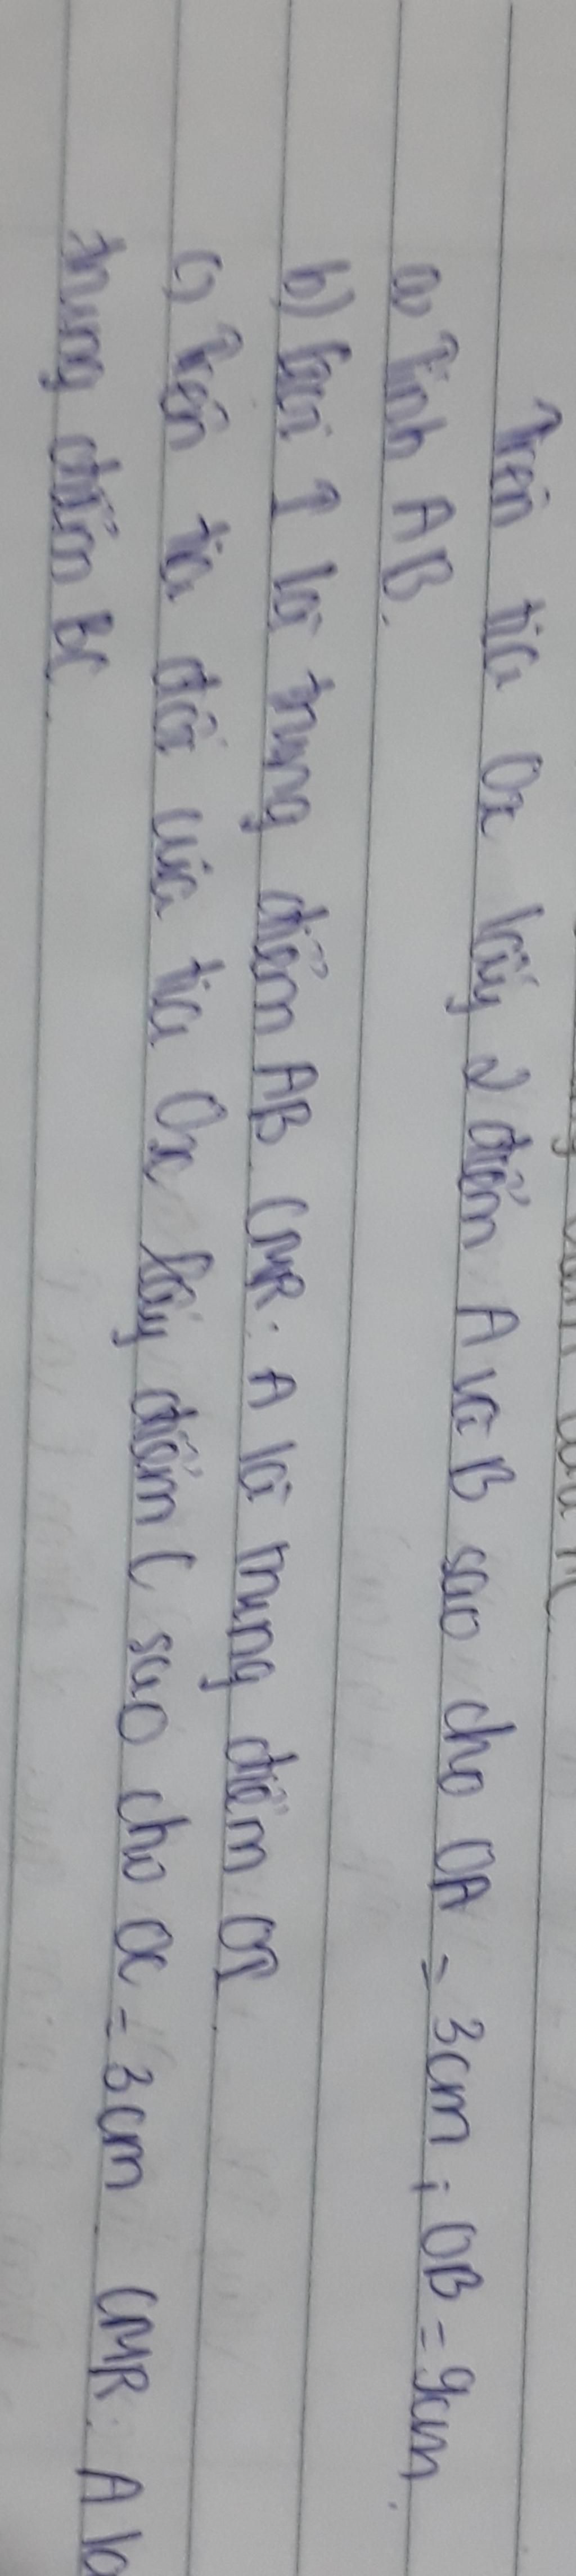 Trên tia Ox lấy 2 điểm A và B sao cho OA = 3cm ; OB = 9cm.
a) Tính AB.
b) Gọi I là trung điểm AB. CMR: A là trung điểm OI.
c) Trên tia đối của tia Ox lấy điểm C sao cho OC = 3cm CMR: A là
trung điểm BC.